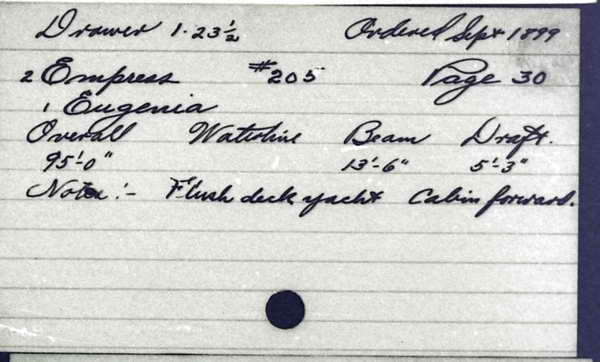 Drawer 1-23½ Ordered Sept 1899
2 Empress #205 Page 30
1 Eugenia
Overall Waterline Beam Draft.
95'-0" 13'-6" 5'-3"
Note:- Flush deck yacht Cabin forward.